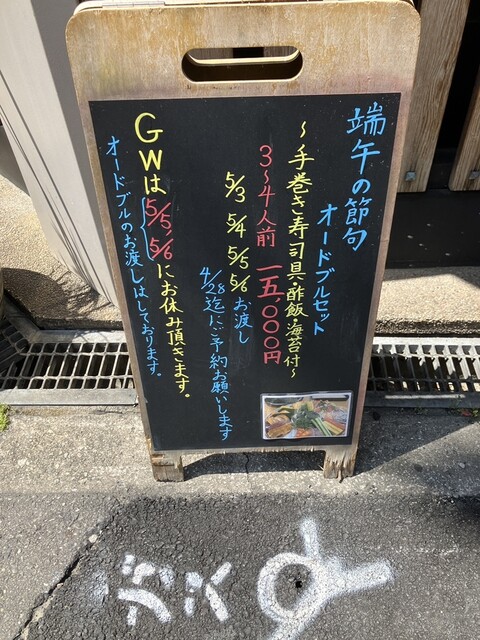 端午の節句
オードブルセット
〜手巻き寿司具・酢飯・海苔付〜
3〜4人前 一五,〇〇〇円
5/3 5/4 5/5 5/6 お渡し
4/28迄にご予約お願いします
GWは5/5,5/6にお休み頂きます。
オードブルのお渡しはしております。